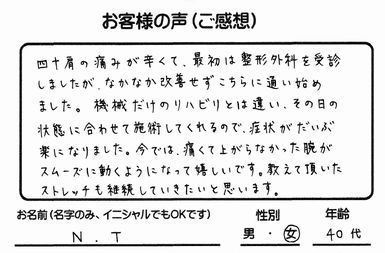 お客様の声(ご感想)
四十肩の痛みが辛くて、最初は整形外科を受診
しましたが、なかなか改善せずこちらに通い始め
ました。機械だけのリハビリとは違い、その日の
状態に合わせて施術してくれるので、症状がだいぶ
楽になりました。今では、痛くて上がらなかった腕が
スムーズに動くようになって嬉しいです。教えて頂いた
ストレッチも継続していきたいと思います。
お名前(名字のみ、イニシャルでもOKです) 性別 年齢
N.T 男・女 40代